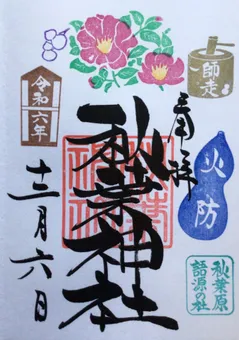 奉拝
秋葉神社
令和六年
十二月六日
師走
火防
秋葉原
語源の社